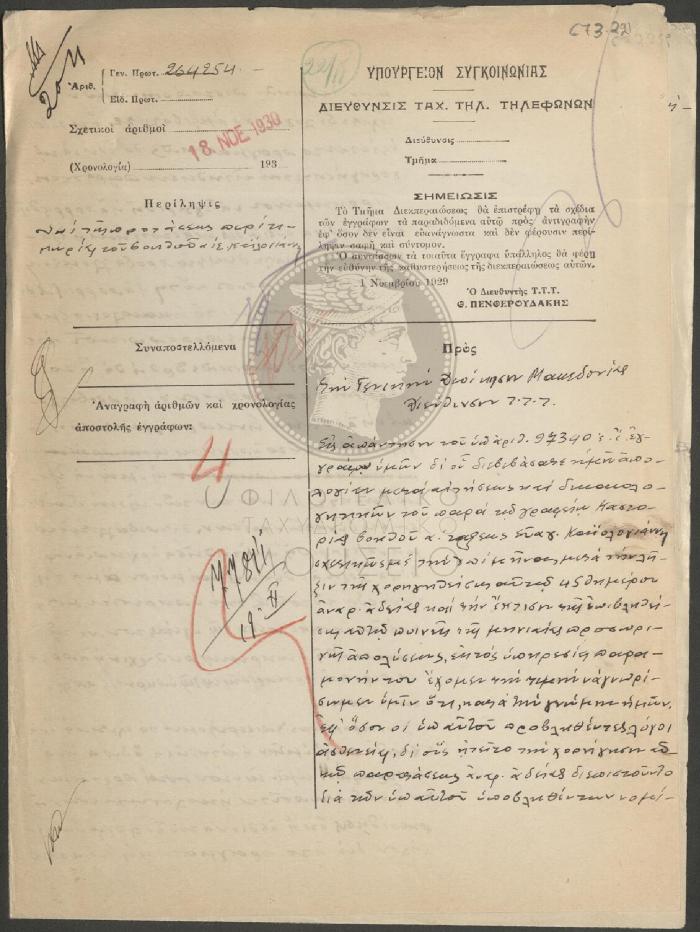 673-22
2011
22/11
Ἀριθ.
Γεν. Πρωτ. 264254.-
Εἰδ. Πρωτ.
Σχετικοὶ ἀριθμοὶ
18 ΝΟΕ 1930
(Χρονολογία) 193
ΥΠΟΥΡΓΕΙΟΝ ΣΥΓΚΟΙΝΩΝΙΑΣ
ΔΙΕΥΘΥΝΣΙΣ ΤΑΧ. ΤΗΛ. ΤΗΛΕΦΩΝΩΝ
Διεύθυνσις
Τμῆμα
Περίληψις
ΣΗΜΕΙΩΣΙΣ
Τὸ Τμῆμα Διεκπεραιώσεως θὰ ἐπιστρέφῃ τὰ σχέδια
τῶν ἐγγράφων τὰ παραδιδόμενα αὐτῷ πρὸς ἀντιγραφὴν
ἐφ' ὅσον δὲν εἶναι εὐανάγνωστα καὶ δὲν φέρουσιν περί-
ληψιν σαφῆ καὶ σύντομον.
Ὁ συντάσσων τὰ τοιαῦτα ἔγγραφα ὑπάλληλος θὰ φέρῃ
τὴν εὐθύνην τῆς καθυστερήσεως τῆς διεκπεραιώσεως αὐτῶν.
1 Νοεμβρίου 1929
Ὁ Διευθυντὴς Τ.Τ.Τ.
Θ. ΠΕΝΘΕΡΟΥΔΑΚΗΣ
Συναποστελλόμενα
Ἀναγραφὴ ἀριθμῶν καὶ χρονολογίας
ἀποστολῆς ἐγγράφων:
4
Πρὸς
Τὴν Γενικὴν Διοίκησιν Μακεδονίας
Διεύθυνσιν Τ.Τ.Τ.
Εἰς ἀπάντησιν τοῦ ὑπ' ἀριθ. 97340 ἐ.ἔ. ἐγ-
γράφου ὑμῶν δι' οὗ διεβιβάσατε ἡμῖν ἀπο-
λογίαν μετὰ αἰτήσεως καὶ δικαιολο-
γητικῶν τοῦ παρὰ τῷ γραφείῳ Καστο-
ριᾶς βοηθοῦ α' τάξεως Εὐαγ.
μετὰ τὴν λῆ-
ξιν τῆς χορηγηθείσης αὐτῷ 45θημέρου
ἀναρ. ἀδείας καὶ τὴν ἔκτισιν τῆς ἐπιβληθεί-
σης αὐτῷ ποινῆς τῆς μηνιαίας προσωρι-
νῆς ἀπολύσεως, ἐκτὸς ὑπηρεσίας παρα-
μονήν του ἔχομεν τὴν τιμὴν νὰ γνωρί-
σωμεν ὑμῖν ὅτι, κατὰ τὴν γνώμην ἡμῶν,
ἐφ' ὅσον οἱ ὑπ' αὐτοῦ προβληθέντες λόγοι
ἀσθενείας, δι' οὓς ᾐτεῖτο τὴν χορήγησιν αὐ-
τῷ παρατάσεως ἀναρ. ἀδείας δικαιοῦντο
διὰ τῶν ὑπ' αὐτοῦ ὑποβληθέντων νομί-
77811
19 XI
ΦΙΛΟΤΕΛΙΚΟ
ΤΑΧΥΔΡΟΜΙΚΟ
ΜΟΥΣΕΙΟ